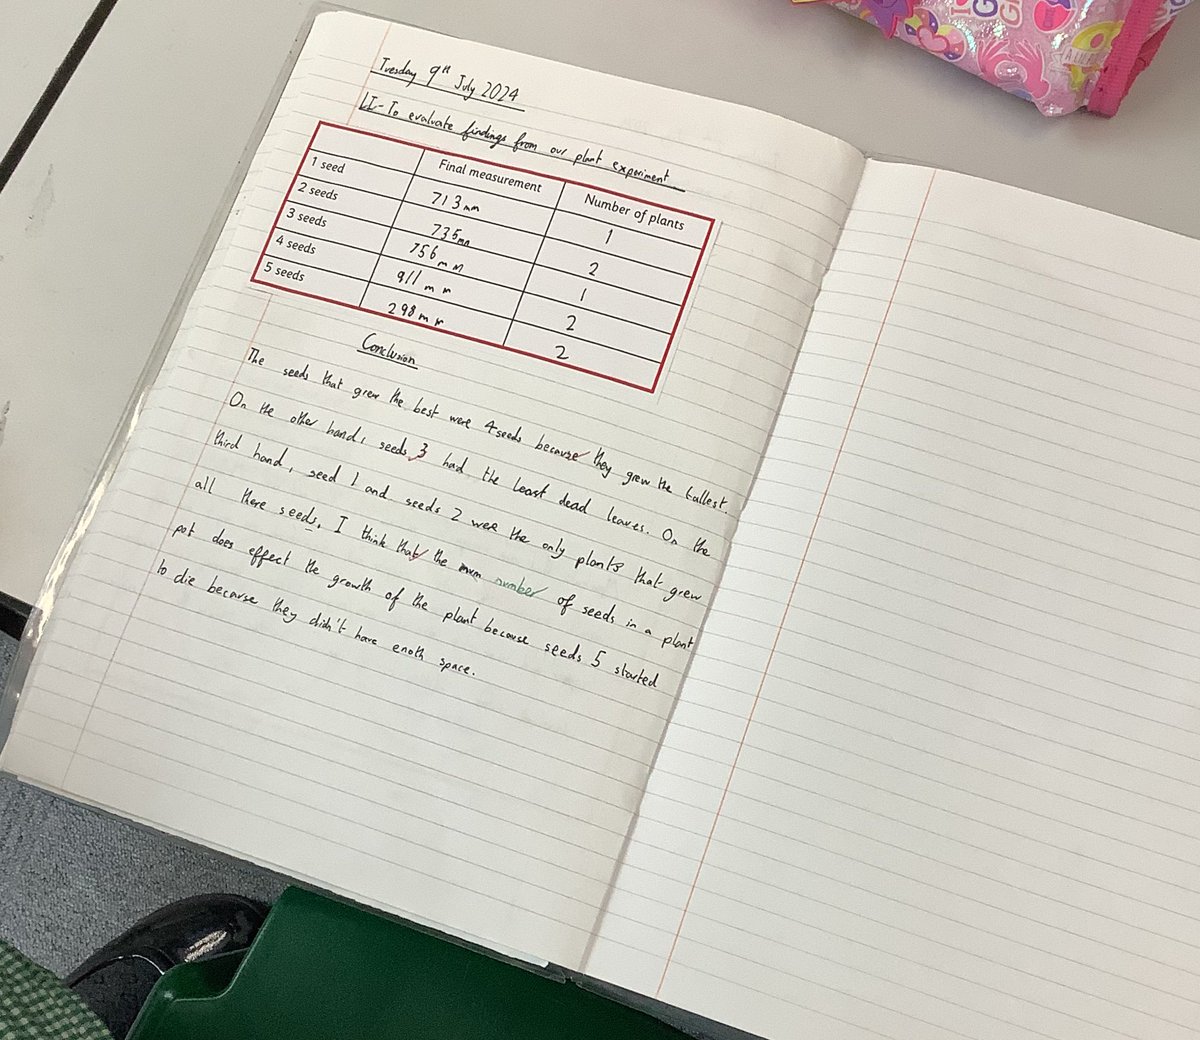 Tuesday 9th July 2024
LI-To evaluate findings from our plant experiment
Final measurement Number of plants
1 seed 713mm 1
2 seeds 735mm 2
3 seeds 756mm 1
4 seeds 911mm 2
5 seeds 298mm 2
Conclusion
The seeds that grew the best were 4 seeds because they grew the tallest.
On the other hand, seeds 3 had the least dead leaves. On the
third hand, seed 1 and seeds 2 were the only plants that grew
all there seeds. I think that the num number of seeds in a plant
pot does effect the growth of the plant because seeds 5 started
to die because they didn't have enoth space.